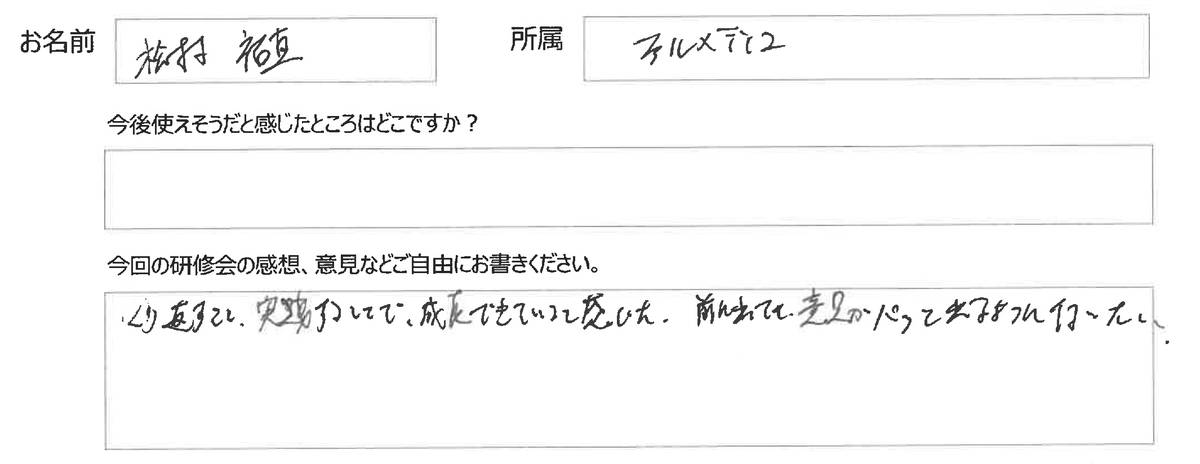 お名前 松村 祐直 所属 アルメディコ
今後使えそうだと感じたところはどこですか？
今回の研修会の感想、意見などご自由にお書きください。
くり返すこと、実践することで、成長できていると感じた。前に出ても、意見がパッと出るように行いたい。